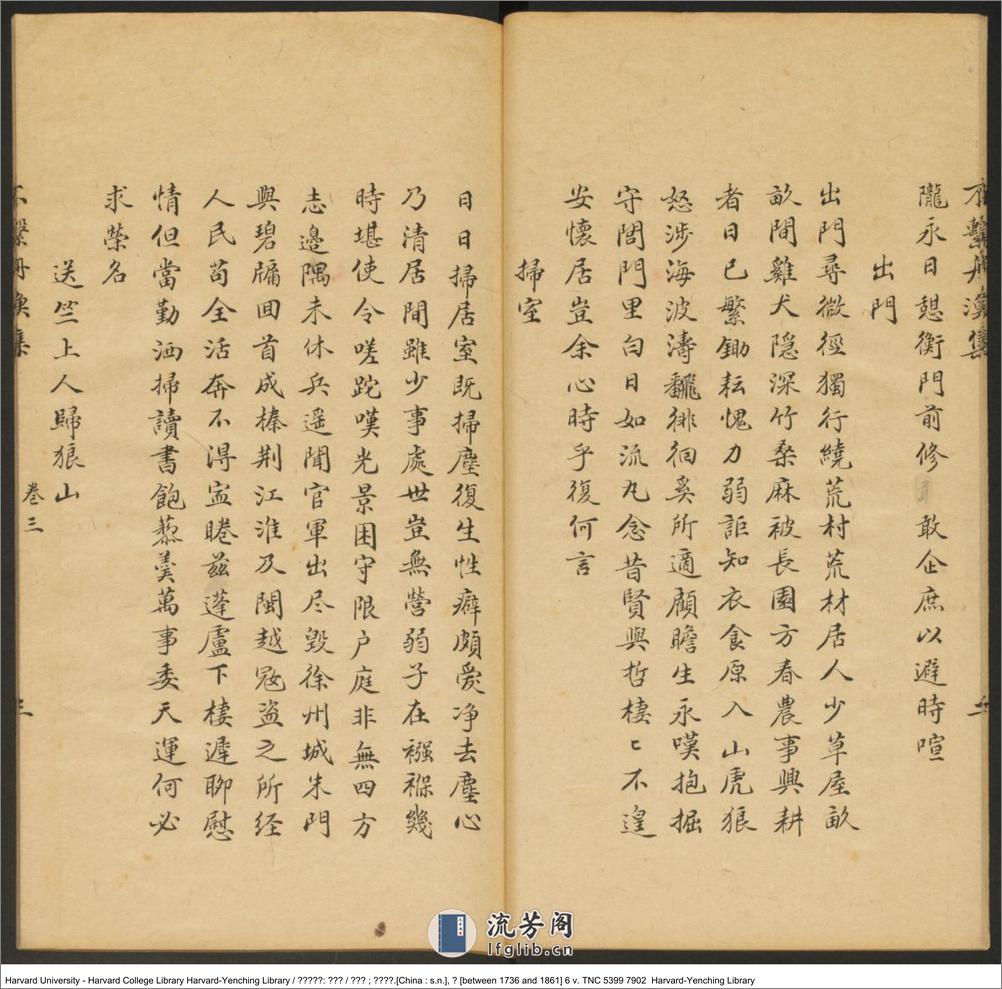 不繫舟漁集
二
隴永日憩衡門前修敢企庶以避時喧
出門
出門尋微徑獨行繞荒村荒材居人少草屋畝
畝間雞犬隱深竹桑麻被長園方春農事興耕
者日已繁鋤耘愧力弱詎知衣食原入山虎狼
怒涉海波濤飜徘徊奚所適顧瞻生永嘆抱掘
守閭門里白日如流丸念昔賢與哲棲〻不遑
安懷居豈余心時乎復何言
掃室
日日掃居室既掃塵復生性癖頗愛净去塵心
乃清居閒雖少事處世豈無營弱子在襁褓幾
時堪使令嗟跎嘆光景困守限户庭非無四方
志邊隅未休兵遥聞官軍出尽毁徐州城朱門
與碧牖回首成榛荆江淮及閩越冦盗之所经
人民苟全活奔不淂寍睠兹蓬廬下棲遲聊慰
情但當勤洒掃讀書飽藜羹萬事委天運何必
求榮名
送竺上人歸狼山
不繫舟漁集
卷三
三
流芳阁
lfglib.cn
Harvard University - Harvard College Library Harvard-Yenching Library / ?????: ??? / ??? ; ????.[China : s.n.], ? [between 1736 and 1861] 6 v. TNC 5399 7902 Harvard-Yenching Library